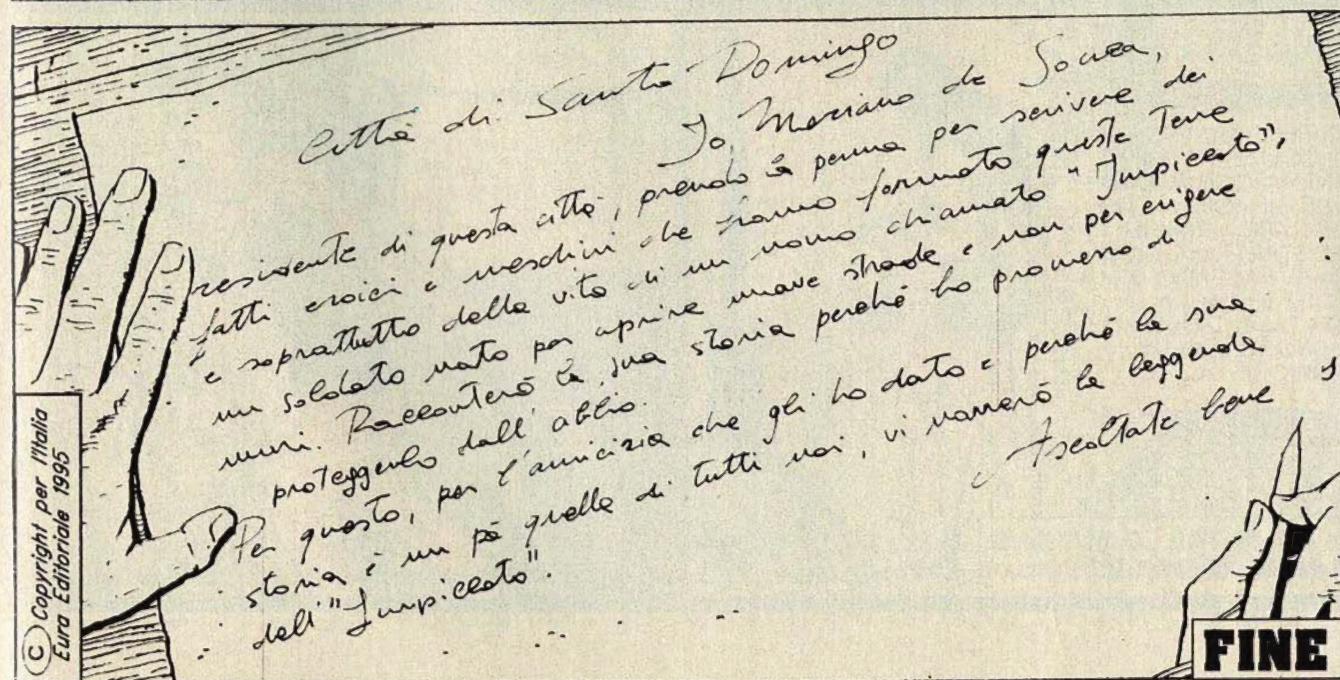 Città di Santo Domingo
Io, Mariano de Souza,
residente di questa città, prendo la penna per scrivere dei
fatti eroici e meschini che hanno formato queste Terre
e soprattutto della vita di un uomo chiamato "Impiccato",
un soldato nato per aprire nuove strade e non per erigere
muri. Racconterò la sua storia perché ho promesso di
proteggerlo dall'oblio.
Per questo, per l'amicizia che gli ho dato e perché la sua
storia è un pò quella di tutti noi, vi narrerò la leggenda
dell'"Impiccato".
Ascoltate bene
© Copyright per l'Italia
Eura Editoriale 1995
FINE